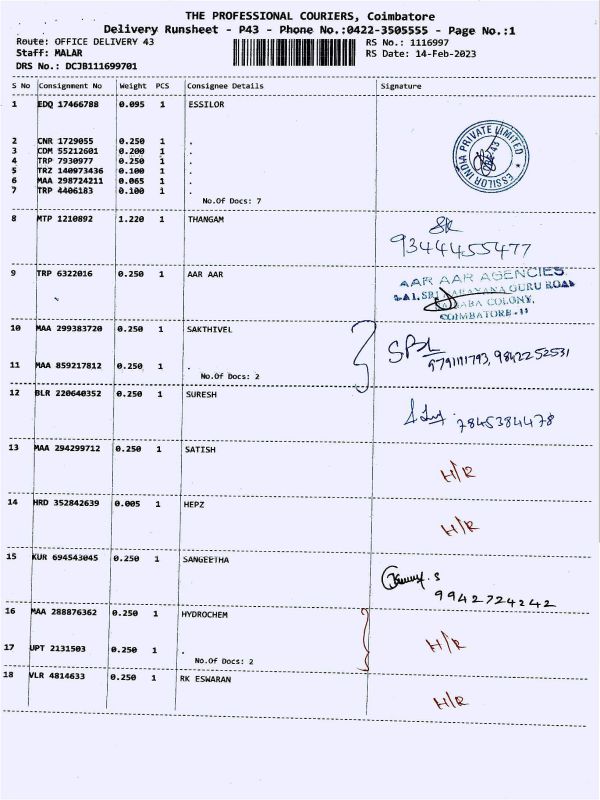 THE PROFESSIONAL COURIERS, Coimbatore
Delivery Runsheet - P43 - Phone No.:0422-3505555 - Page No.:1
Route: OFFICE DELIVERY 43
RS No.: 1116997
Staff: MALAR
RS Date: 14-Feb-2023
DRS No.: DCJB111699701
S No Consignment No Weight PCS Consignee Details Signature
1 EDQ 17466788 0.095 1 ESSILOR
ESSILOR INDIA PRIVATE LIMITED
2 CNR 1729055 0.250 1 .
3 CDM 55212601 0.200 1 .
4 TRP 7930977 0.250 1 .
5 TRZ 140973436 0.100 1 .
6 MAA 298724211 0.065 1 .
7 TRP 4406183 0.100 1 .
No.Of Docs: 7
8 MTP 1210892 1.220 1 THANGAM
9344455477
9 TRP 6322016 0.250 1 AAR AAR
AAR AAR AGENCIES
NARAYANA GURU ROAD
COLONY,
COIMBATORE-11
10 MAA 299383720 0.250 1 SAKTHIVEL
SBL
9791111793, 9842252531
11 MAA 859217812 0.250 1 .
No.Of Docs: 2
12 BLR 220640352 0.250 1 SURESH
7845384478
13 MAA 294299712 0.250 1 SATISH
H/R
14 HRD 352842639 0.005 1 HEPZ
H/R
15 KUR 694543045 0.250 1 SANGEETHA
9942724242
16 MAA 288876362 0.250 1 HYDROCHEM
H/R
17 UPT 2131503 0.250 1 .
No.Of Docs: 2
18 VLR 4814633 0.250 1 RK ESWARAN
H/R